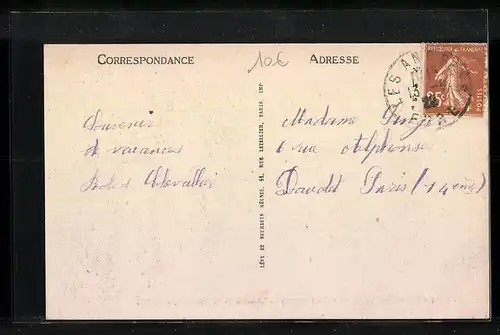 CORRESPONDANCE
10€
ADRESSE
RÉPUBLIQUE FRANÇAISE
25c
POSTES
Souvenir
de vacances
Chevallier
LÉVY ET NEURDEIN RÉUNIS, 44, RUE LETELLIER, PARIS. IMP
Madame
6 rue Alphonse
Davold Paris (14 ème)